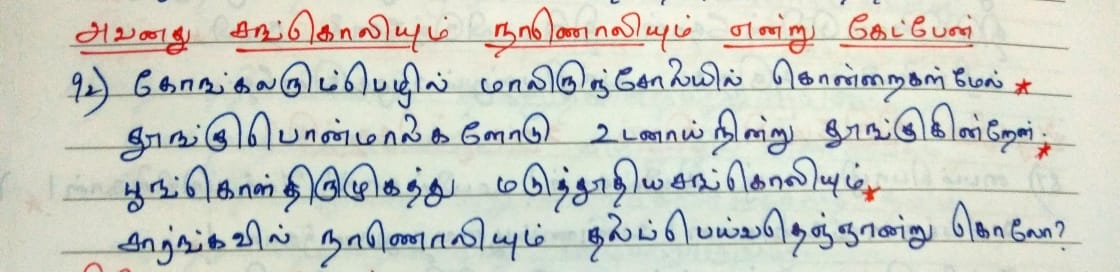 அவனது சங்கொலியும் நாணொலியும் என்று கேட்பேன்
92) கோங்கலரும்பொழில் மாலிருஞ்சோலையில் கொன்றைகள்மேல் *
தூங்குபொன்மாலைகளோடு உடனாய்நின்று தூங்குகின்றேன் *
பூங்கொள்திருமுகத்து மடுத்தூதியசங்கொலியும் *
சார்ங்கவில் நாணொலியும் தலைப்பெய்வதெஞ்ஞான்று கொலோ?